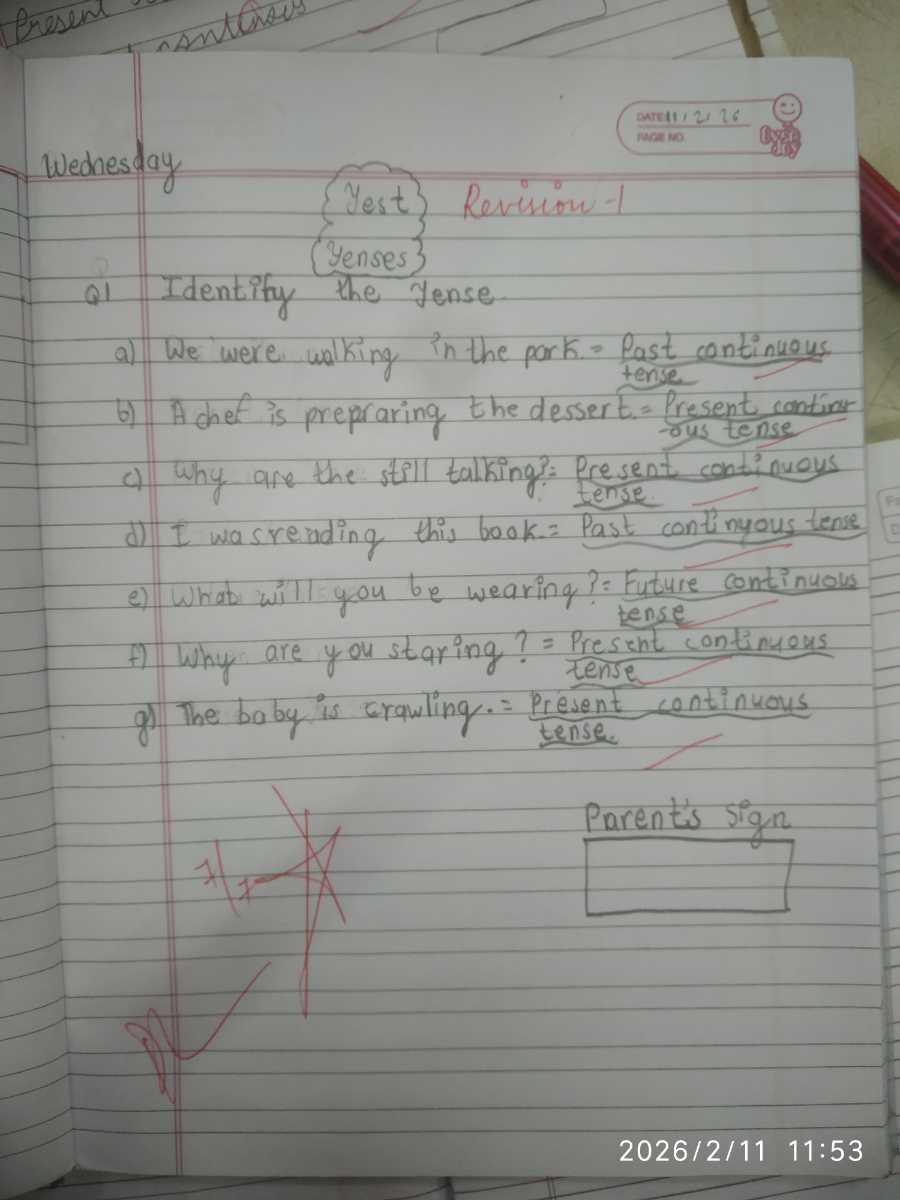 Present
continous
DATE 11/2/26
PAGE NO.
Wednesday
Test Revision-1
Tenses
Q1 Identify the Tense
a) We were walking in the park = Past continuous
tense
b) A chef is prepraring the dessert. = Present continu
-ous tense
c) Why are the still talking? = Present continuous
tense.
d) I was reading this book. = Past continyous tense
e) What will you be wearing? = Future continuous
tense
f) Why are you staring? = Present continuous
tense
g) The baby is crawling. = Present continuous
tense.
Parent's sign
7/7
2026/2/11 11:53